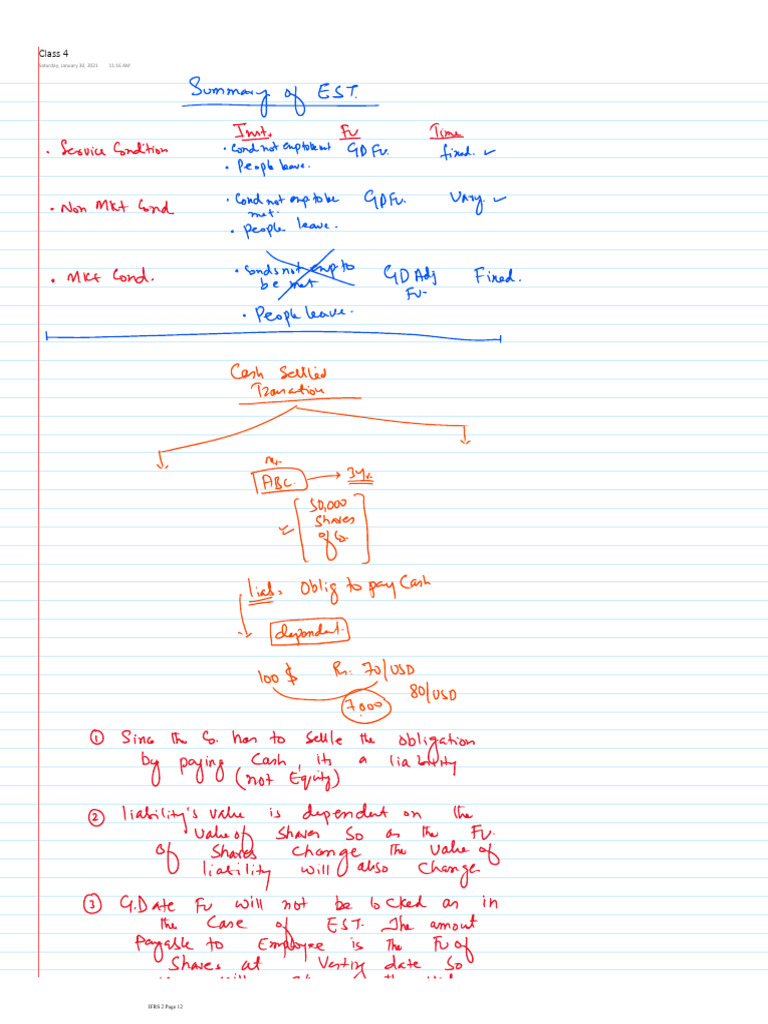 Class 4
Saturday, January 30, 2021 11:16 AM
Summary of EST.
Inst. Fv Time
• Service Condition • Cond not exp to be met GD Fv. fixed. ✓
• People leave.
• Non Mkt Cond • Cond not exp to be GD Fv. Vary. ✓
met.
• people leave.
• Mkt Cond. • Conds not exp to GD Adj Fixed.
be met Fv.
• People leave.
Cash Settled
Transation
Mr.
ABC. → 3 yr.
50,000
Shares
of Co.
liab. Oblig to pay Cash
dependent.
100 $ Rs. 70/USD
80/USD
7000
① Since the Co. has to settle the obligation
by paying Cash, its a liability
(not Equity)
② liability's value is dependent on the
value of shares so as the Fv.
of shares change the value of
liability will also change
③ G.Date Fv will not be locked as in
the Case of EST. The amout
Payable to Employee is the Fv of
Shares at Vesting date So
IFRS 2 Page 12